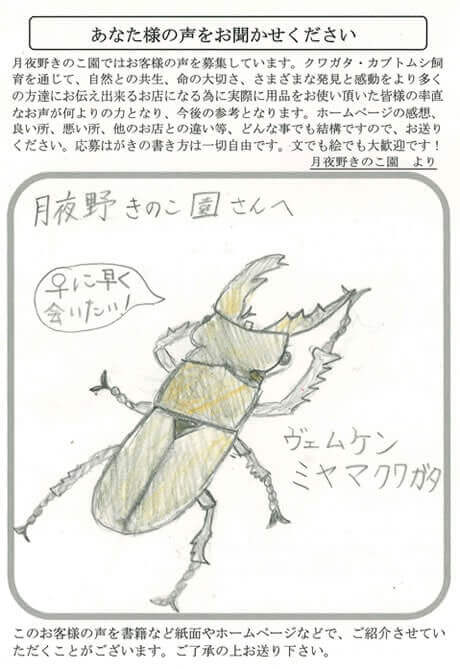 あなた様の声をお聞かせください
月夜野きのこ園ではお客様の声を募集しています。クワガタ・カブトムシ飼
育を通じて、自然との共生、命の大切さ、さまざまな発見と感動をより多く
の方達にお伝え出来るお店になる為に実際に用品をお使い頂いた皆様の率直
なお声が何よりの力となり、今後の参考となります。ホームページの感想、
良い所、悪い所、他のお店との違い等、どんな事でも結構ですので、お送り
ください。応募はがきの書き方は一切自由です。文でも絵でも大歓迎です！
月夜野きのこ園　より
月夜野きのこ園さんへ
♀に早く
会いたい！
ヴェムケン
ミヤマクワガタ
このお客様の声を書籍など紙面やホームページなどで、ご紹介させてい
ただくことがございます。ご了承の上お送り下さい。